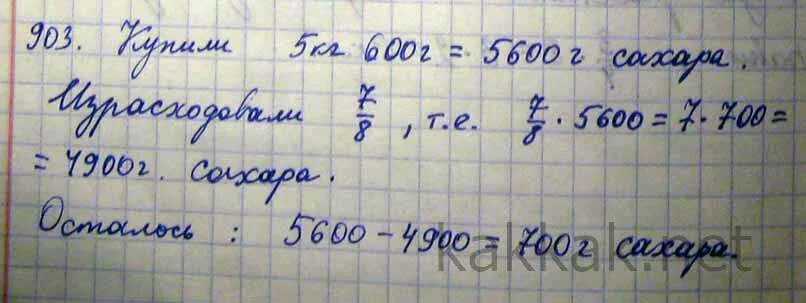 903. Купили 5кг 600г = 5600 г сахара.
Израсходовали 7/8, т.е. 7/8 · 5600 = 7 · 700 =
= 4900г. сахара.
Осталось : 5600 - 4900 = 700 г сахара.
kakkak.net